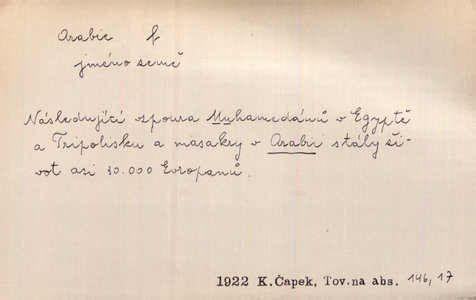 Arabie f
jméno země
Následující vzpoura Muhamedánů v Egyptě
a Tripolisku a masakry v Arabii stály ži-
vot asi 30.000 Evropanů.
1922 K.Čapek, Tov.na abs. 146, 17